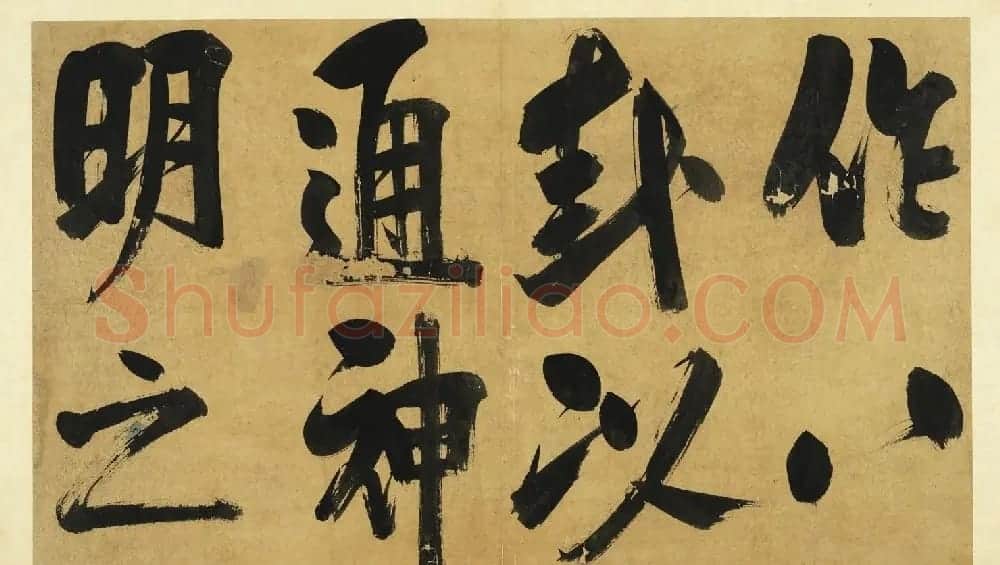 作八
卦以
通神
明之
Shufaziliao.COM